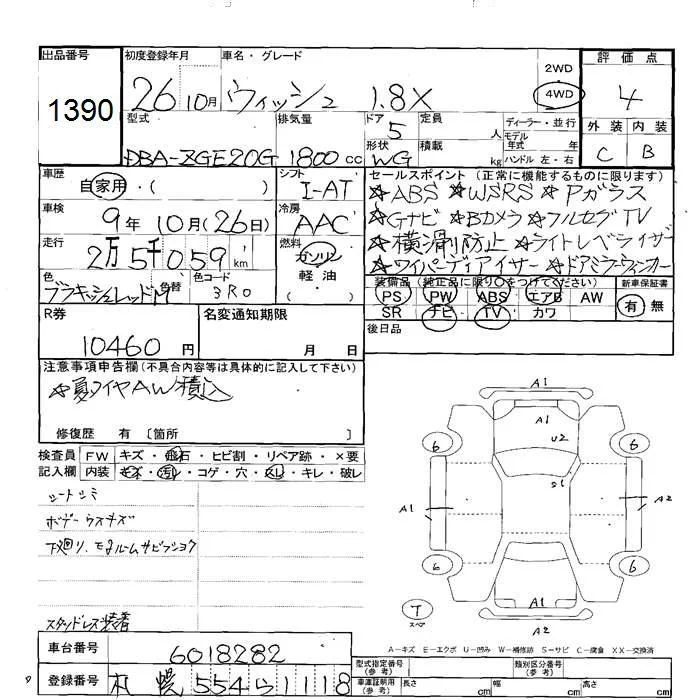 出品番号
1390
初度登録年月
26 10月
車名・グレード
ウィッシュ 1.8X
2WD
4WD
評価点
4
外装 内装
C B
型式
DBA-ZGE20G
排気量
1800 cc
ドア 5
定員 人
形状 WG
積載 kg
ディーラー・並行
モデル年式 年
ハンドル 左・右
車歴
自家用・( )
シフト
I-AT
車検
9年10月(26日)
冷房
AAC
走行
2万5千059 km
燃料
ガソリン
軽油
( )
色
ブラキッシュレッドM
色替
色コード
3R0
セールスポイント(正常に機能するものに限ります)
☆ABS ☆WSRS ☆Pガラス
☆Gナビ ☆Bカメラ ☆フルセグTV
☆横滑り防止 ☆ライトレベライザー
☆ワイパーディアイサー ☆ドアミラーウィンカー
装備品(純正品に限り○をつけてください)
PS PW ABS エアB AW
SR ナビ TV カワ
新車保証書
有 無
後日品
R券
10460 円
名変通知期限
月 日
注意事項申告欄(不具合内容等は具体的に記入して下さい)
☆夏タイヤAW積込
修復歴 有 〔箇所 〕
検査員記入欄
FW キズ・飛石・ヒビ割・リペア跡・×要
内装 キズ・汚れ・コゲ・穴・スレ・キレ・破レ
シートシミ
ボデーウスキズ
下廻り、モタルームサビフショク
スタッドレス装着
A1
A1
U2
S1
6 6
A1 A2
6 6
A1
A2
T
スペア
A-キズ E-エクボ U-凹み W-補修跡 S-サビ C-腐食 XX-交換済
車台番号
6018282
登録番号
札幌 554 ら 1118
型式指定番号(参考)
類別区分番号(参考)
車庫証明用(参考)
長さ cm
幅 cm
高さ cm